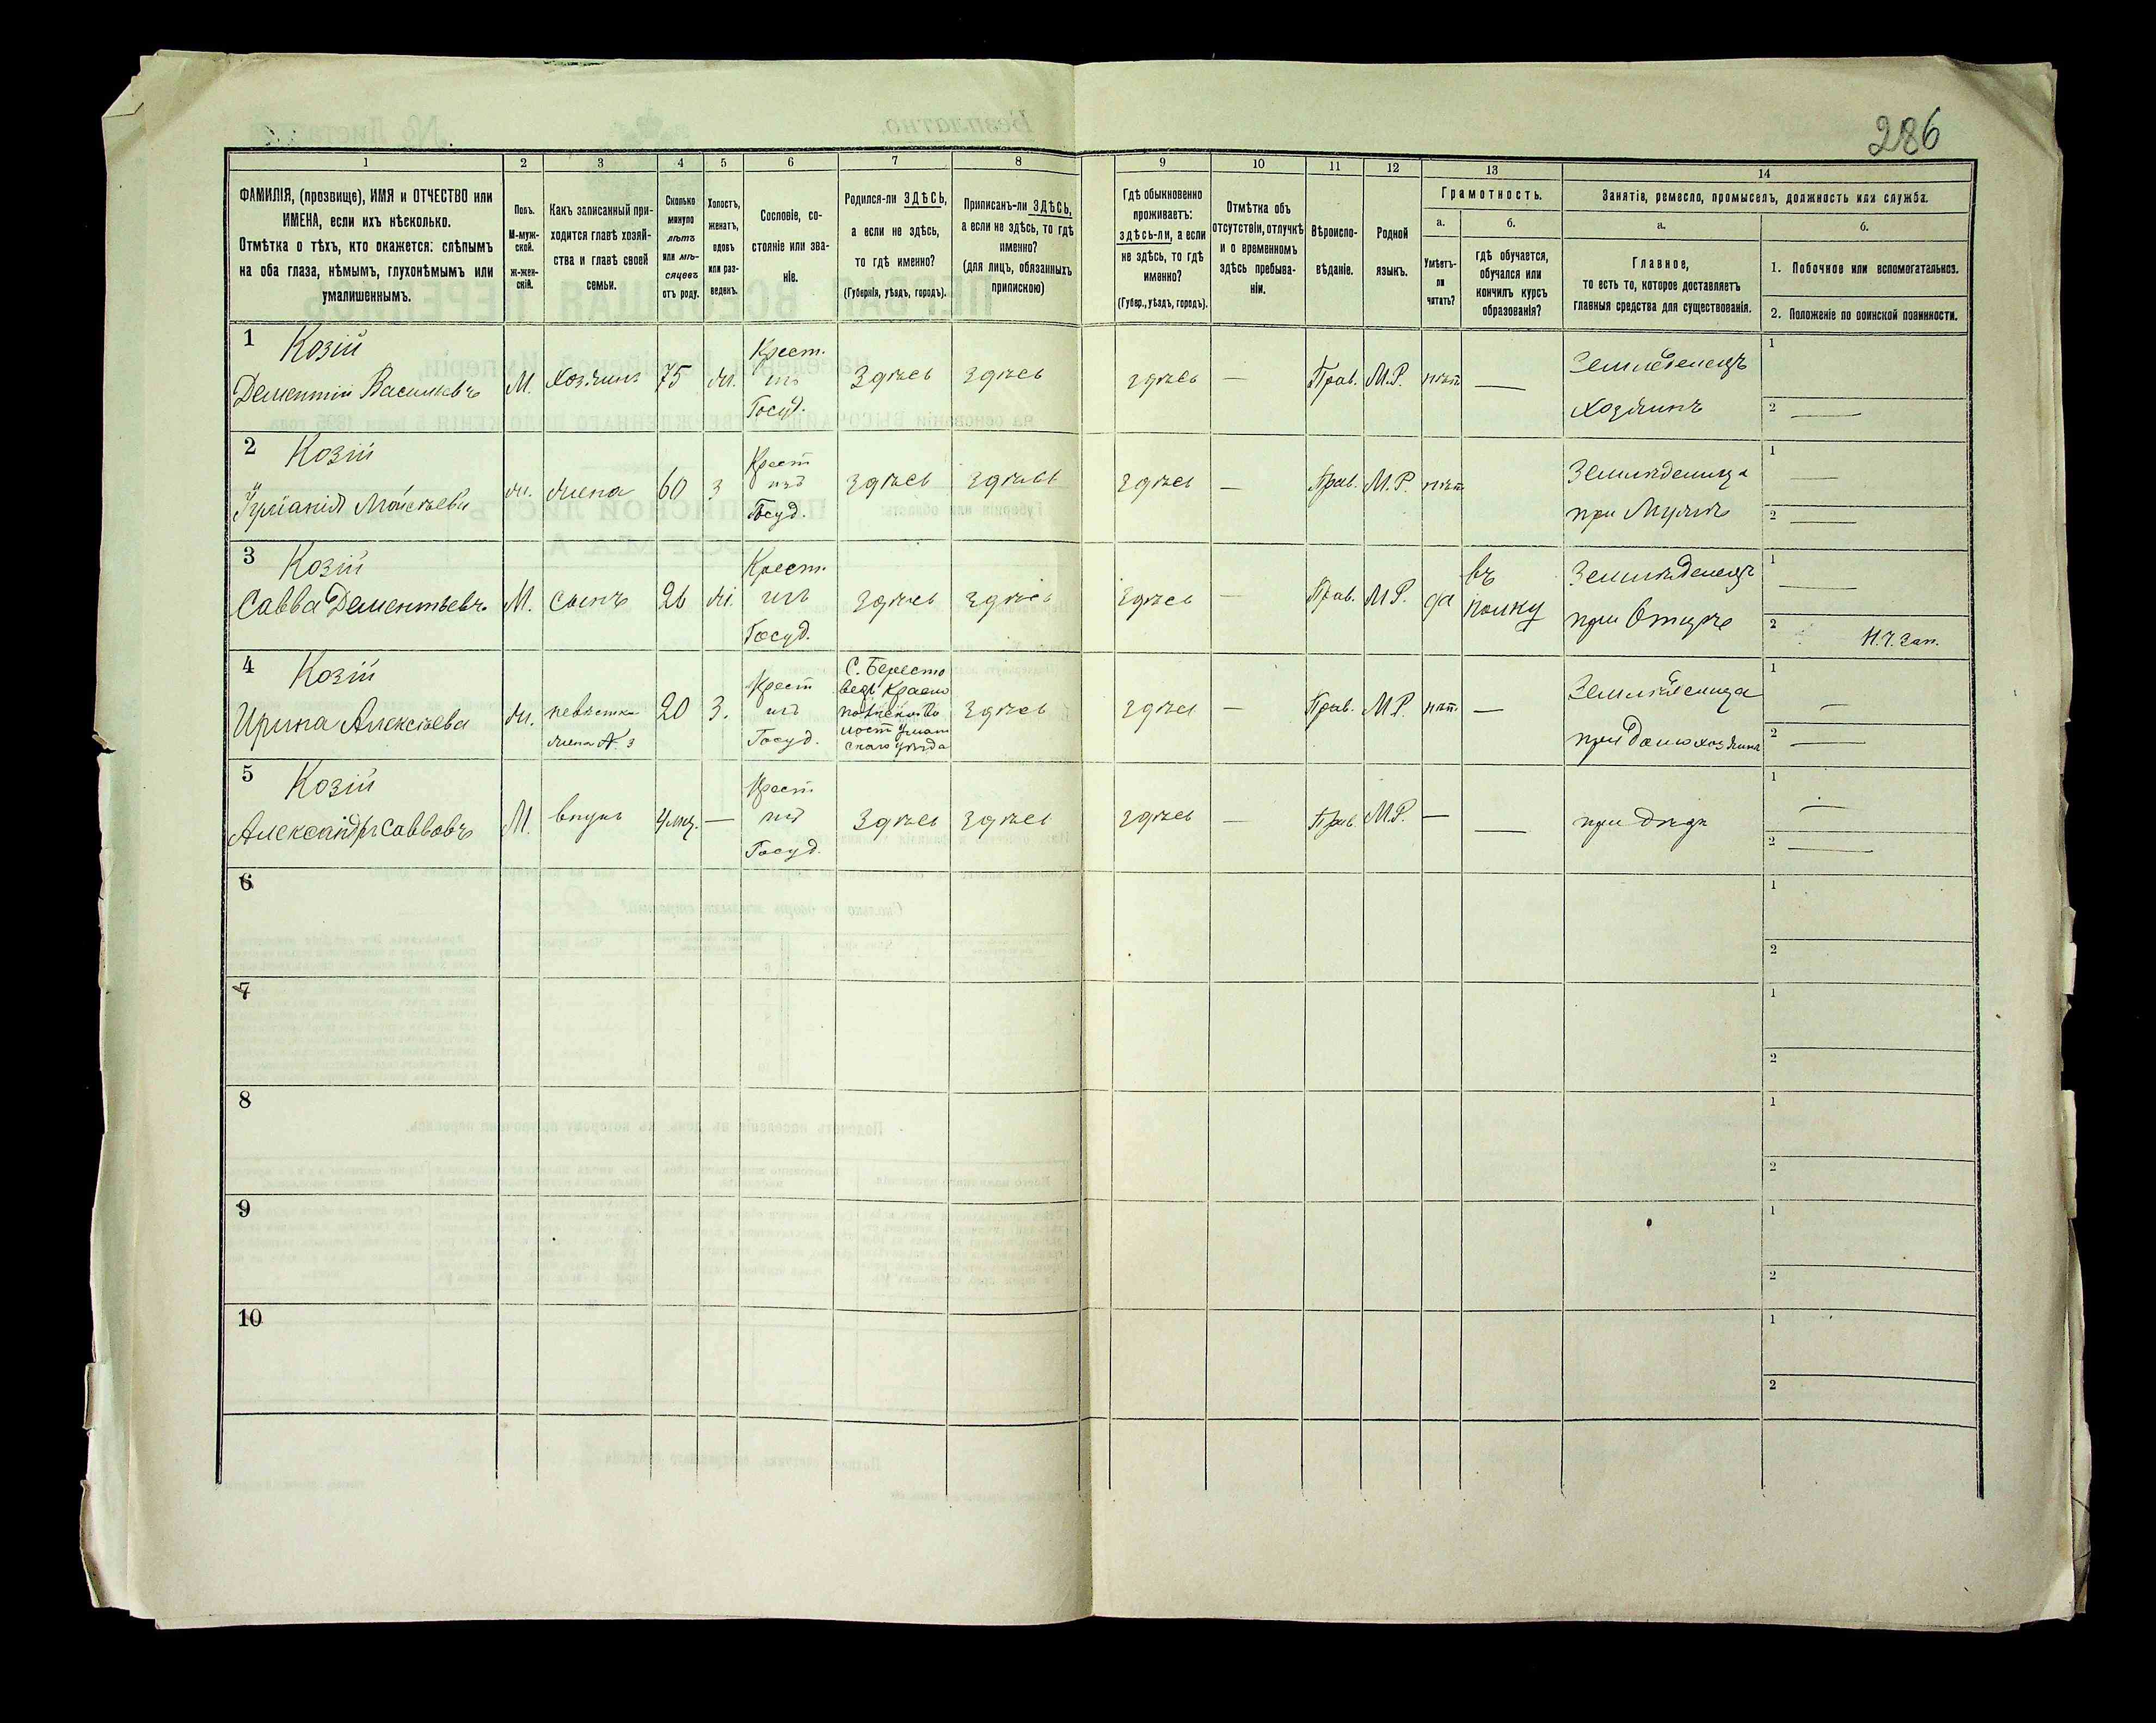 286
1 2 3 4 5 6 7 8 9 10 11 12 13 14
ФАМИЛІЯ, (прозвище), ИМЯ и ОТЧЕСТВО или
ИМЕНА, если ихъ нѣсколько.
Отмѣтка о тѣхъ, кто окажется: слѣпымъ
на оба глаза, нѣмымъ, глухонѣмымъ или
умалишеннымъ.
Полъ.
М-муж-
ской.
Ж-жен-
скій.
Какъ записанный при-
ходится главѣ хозяй-
ства и главѣ своей
семьи.
Сколько
минуло
лѣтъ
или мѣ-
сяцевъ
отъ роду.
Холостъ,
женатъ,
вдовъ
или раз-
веденъ.
Сословіе, со-
стояніе или зва-
ніе.
Родился-ли ЗДѢСЬ,
а если не здѣсь,
то гдѣ именно?
(Губернія, уѣздъ, городъ).
Приписанъ-ли ЗДѢСЬ,
а если не здѣсь, то гдѣ
именно?
(для лицъ, обязанныхъ
припискою)
Гдѣ обыкновенно
проживаетъ:
здѣсь-ли, а если
не здѣсь, то гдѣ
именно?
(Губер., уѣздъ, городъ).
Отмѣтка объ
отсутствіи, отлучкѣ
и о временномъ
здѣсь пребыва-
ніи.
Вѣроиспо-
вѣданіе.
Родной
языкъ.
Грамотность.
а.
Умѣетъ-
ли
читать?
б.
гдѣ обучается,
обучался или
кончилъ курсъ
образованія?
Занятіе, ремесло, промыселъ, должность или служба.
а.
Главное,
то есть то, которое доставляетъ
главныя средства для существованія.
б.
1. Побочное или вспомогательное.
2. Положеніе по воинской повинности.
1 Козій
Дементій Васильевъ
М.
Хозяинъ
75
ж.
Крест.
изъ
Госуд.
Здѣсь
здѣсь
здѣсь
—
Прав.
М.Р.
нѣт
—
Земледелецъ
хозяинъ
1
2 —
2 Козій
Моисѣева
ж.
жена
60
з
Крест
изъ
Госуд.
здѣсь
здѣсь
здѣсь
—
Прав.
М.Р.
нѣт
Земледелица
при Мужѣ
1 —
2 —
3 Козій
Савва Дементьевъ
М.
сынъ
26
ж.
Крест.
изъ
Госуд.
здѣсь
здѣсь
здѣсь
—
Прав.
М.Р.
да
въ
полку
Земледелецъ
при Отцѣ
1 —
2 Н.Ч. Зап.
4 Козій
Ирина Алексѣева
ж.
невѣстка
жена N. 3
20
з.
Крест
изъ
Госуд.
С. Бересто
вецъ
уман
скаго уѣзда
здѣсь
здѣсь
—
Прав.
М.Р.
нѣт.
—
Земледелица
при домохозяинѣ
1 —
2 —
5 Козій
Александръ Саввовъ
М.
внукъ
4 мц.
—
Крест
изъ
Госуд.
Здѣсь
здѣсь
здѣсь
—
Прав.
М.Р.
—
—
при дѣдѣ
1 —
2 —
6
1
2
7
1
2
8
1
2
9
1
2
10
1
2